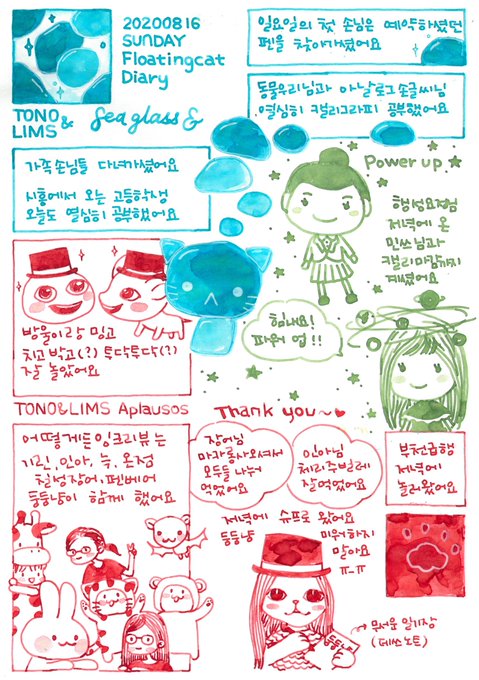 20200816
SUNDAY
Floatingcat
Diary
TONO&
LIMS
Seaglass &
일요일의 첫 손님은 예약하셨던
펜을 찾아가셨어요
동물우리님과 아날로그 손글씨님
열심히 캘리그라피 공부했어요
가족손님들 다녀가셨어요
시흥에서 오는 고등학생
오늘도 열심히 공부했어요
Power up
행성요정님
저녁에 온
민쓰님과
캘리마감까지
계셨어요
힘내요!
파워 업!!
방울이랑 밍고
치고 박고(?) 투닥투닥(?)
잘 놀았어요
TONO&LIMS Aplausos
Thank you~
어떻게든 잉크리뷰는
기린, 인아, 녹, 온점
칠성장어, 펜베어
등등냥이 함께 했어요
장어님
마카롱사오셔서
모두들 나눠
먹었어요
인아님
체리주빌레
잘먹었어요
부천급행
저녁에
놀러왔어요
저녁에 슈프로 왔어요
등등냥 미워하지
말아요
ㅠ_ㅠ
등등냥
무서운 일기장
(데쓰노트)